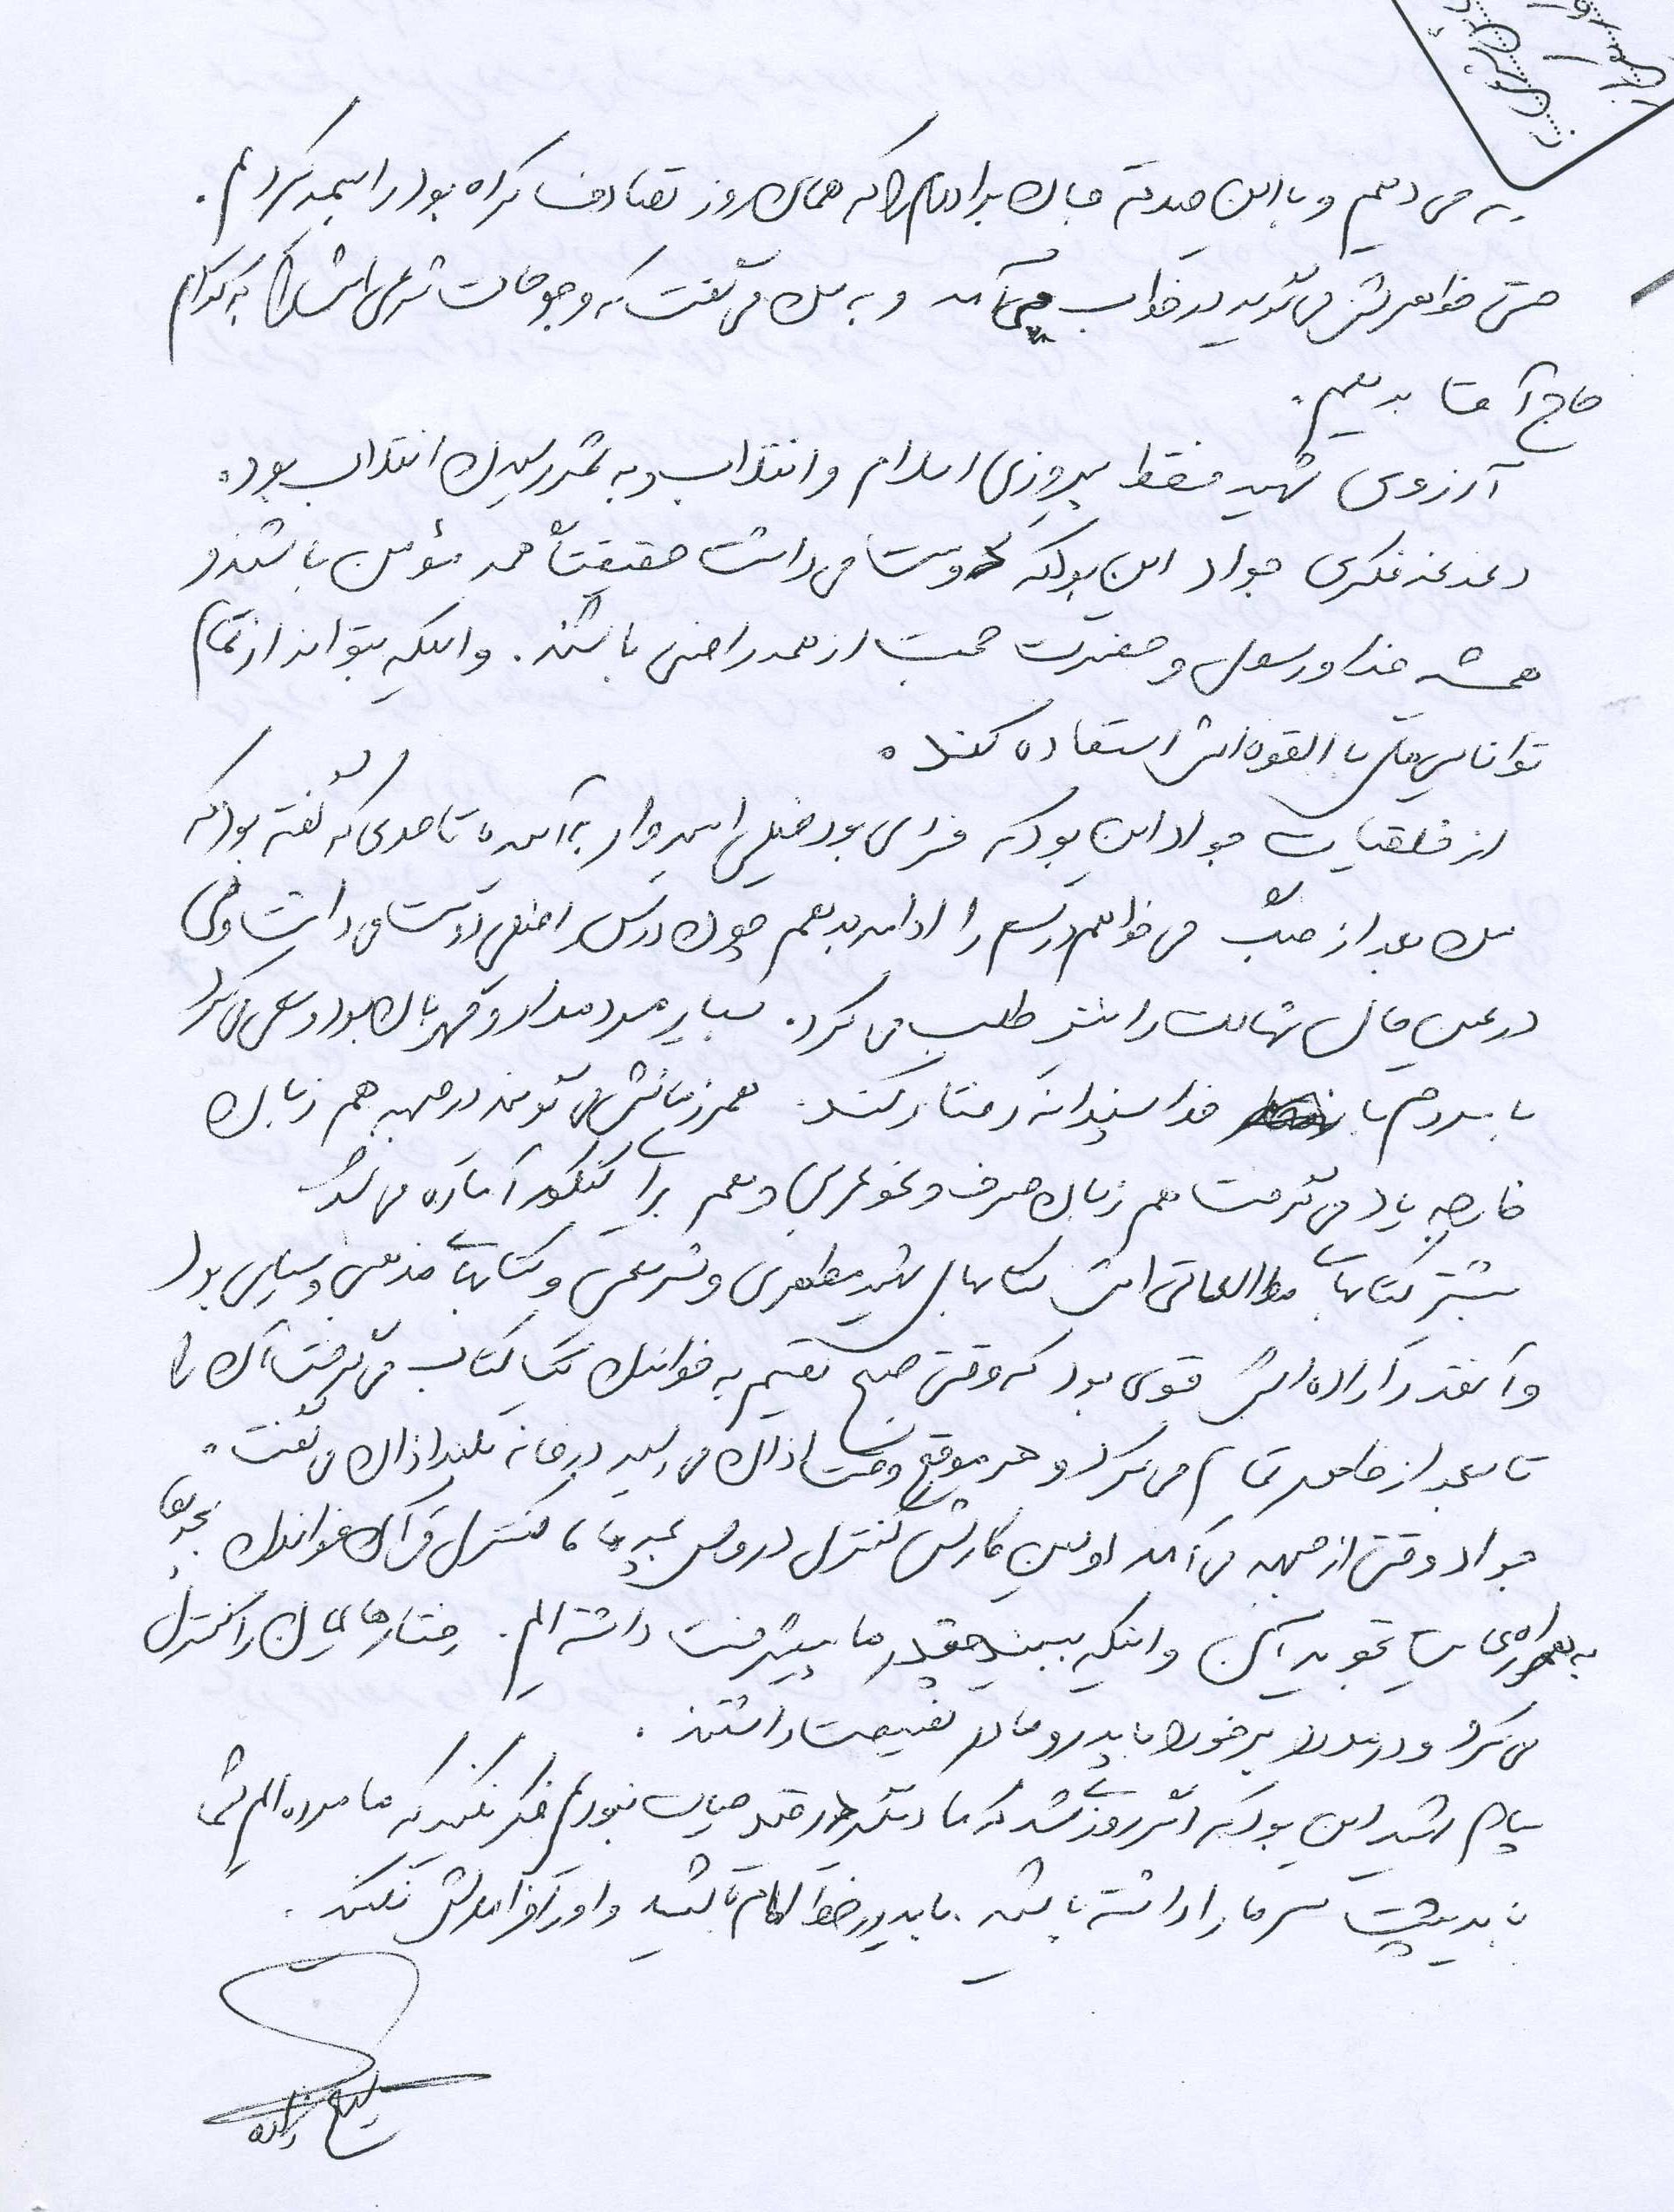 به می دهیم و با این صدقه جان برادرم را که همان روز تصادف کرده بود را بیمه کردیم.
حتی خواهرش می گوید در خواب می آمد و به من می گفت که وجوهات شرعی اش را به کدام
حاج آقا بدهیم.
آرزوی شهید فقط پیروزی اسلام و انقلاب و به ثمر رسیدن انقلاب بود.
دغدغه فکری جواد این بود که دوست می داشت حقیقتاً همه مؤمن باشند و
همیشه خدا و رسول و حضرت حجت از همه راضی باشند. و اینکه بتواند از تمام
توانایی های بالقوه اش استفاده کند.
از خلقیات جواد این بود که فردی بود خیلی امیدوار به آینده تا حدی که گفته بود که
من بعد از جنگ می خواهم درسم را ادامه بدهم چون درس را خیلی دوست می داشت ولی
در عین حال شهادت را بیشتر طلب می کرد. بسیار مردمدار و مهربان بود و سعی می کرد
با مردم با خداپسندانه رفتار کند. همرزمانش می گویند در جبهه هم زبان
خارجه یاد می گرفت هم زبان صرف و نحو عربی و هم برای کنکور آماده می شد
بیشتر کتابهای مطالعاتی اش کتابهای شهید مطهری و شریعتی و کتابهای مذهبی و سیاسی بود
و آنقدر اراده اش قوی بود که وقتی صبح تصمیم به خواندن یک کتاب می گرفت آن را
تا بعد از ظهر تمام می کرد و هر موقع وقت اذان می رسید در خانه بلند اذان می گفت.
جواد وقتی از جبهه می آمد اولین کارش کنترل دروس بچه ها، کنترل قرآن خواندن بچه ها
به همراه تجوید آن و اینکه ببیند چقدر ما پیشرفت داشته ایم. رفتارهایمان را کنترل
می کرد و در مورد برخورد با پدر و مادر نصیحت داشتند.
پیام شهید این بود که اگر روزی شد که ما دیگر در قید حیات نبودیم فکر نکنید که ما مرده ایم شما
باید پشت سر ما را داشته باشید. باید در خط امام باشید و او را فراموش نکنید.